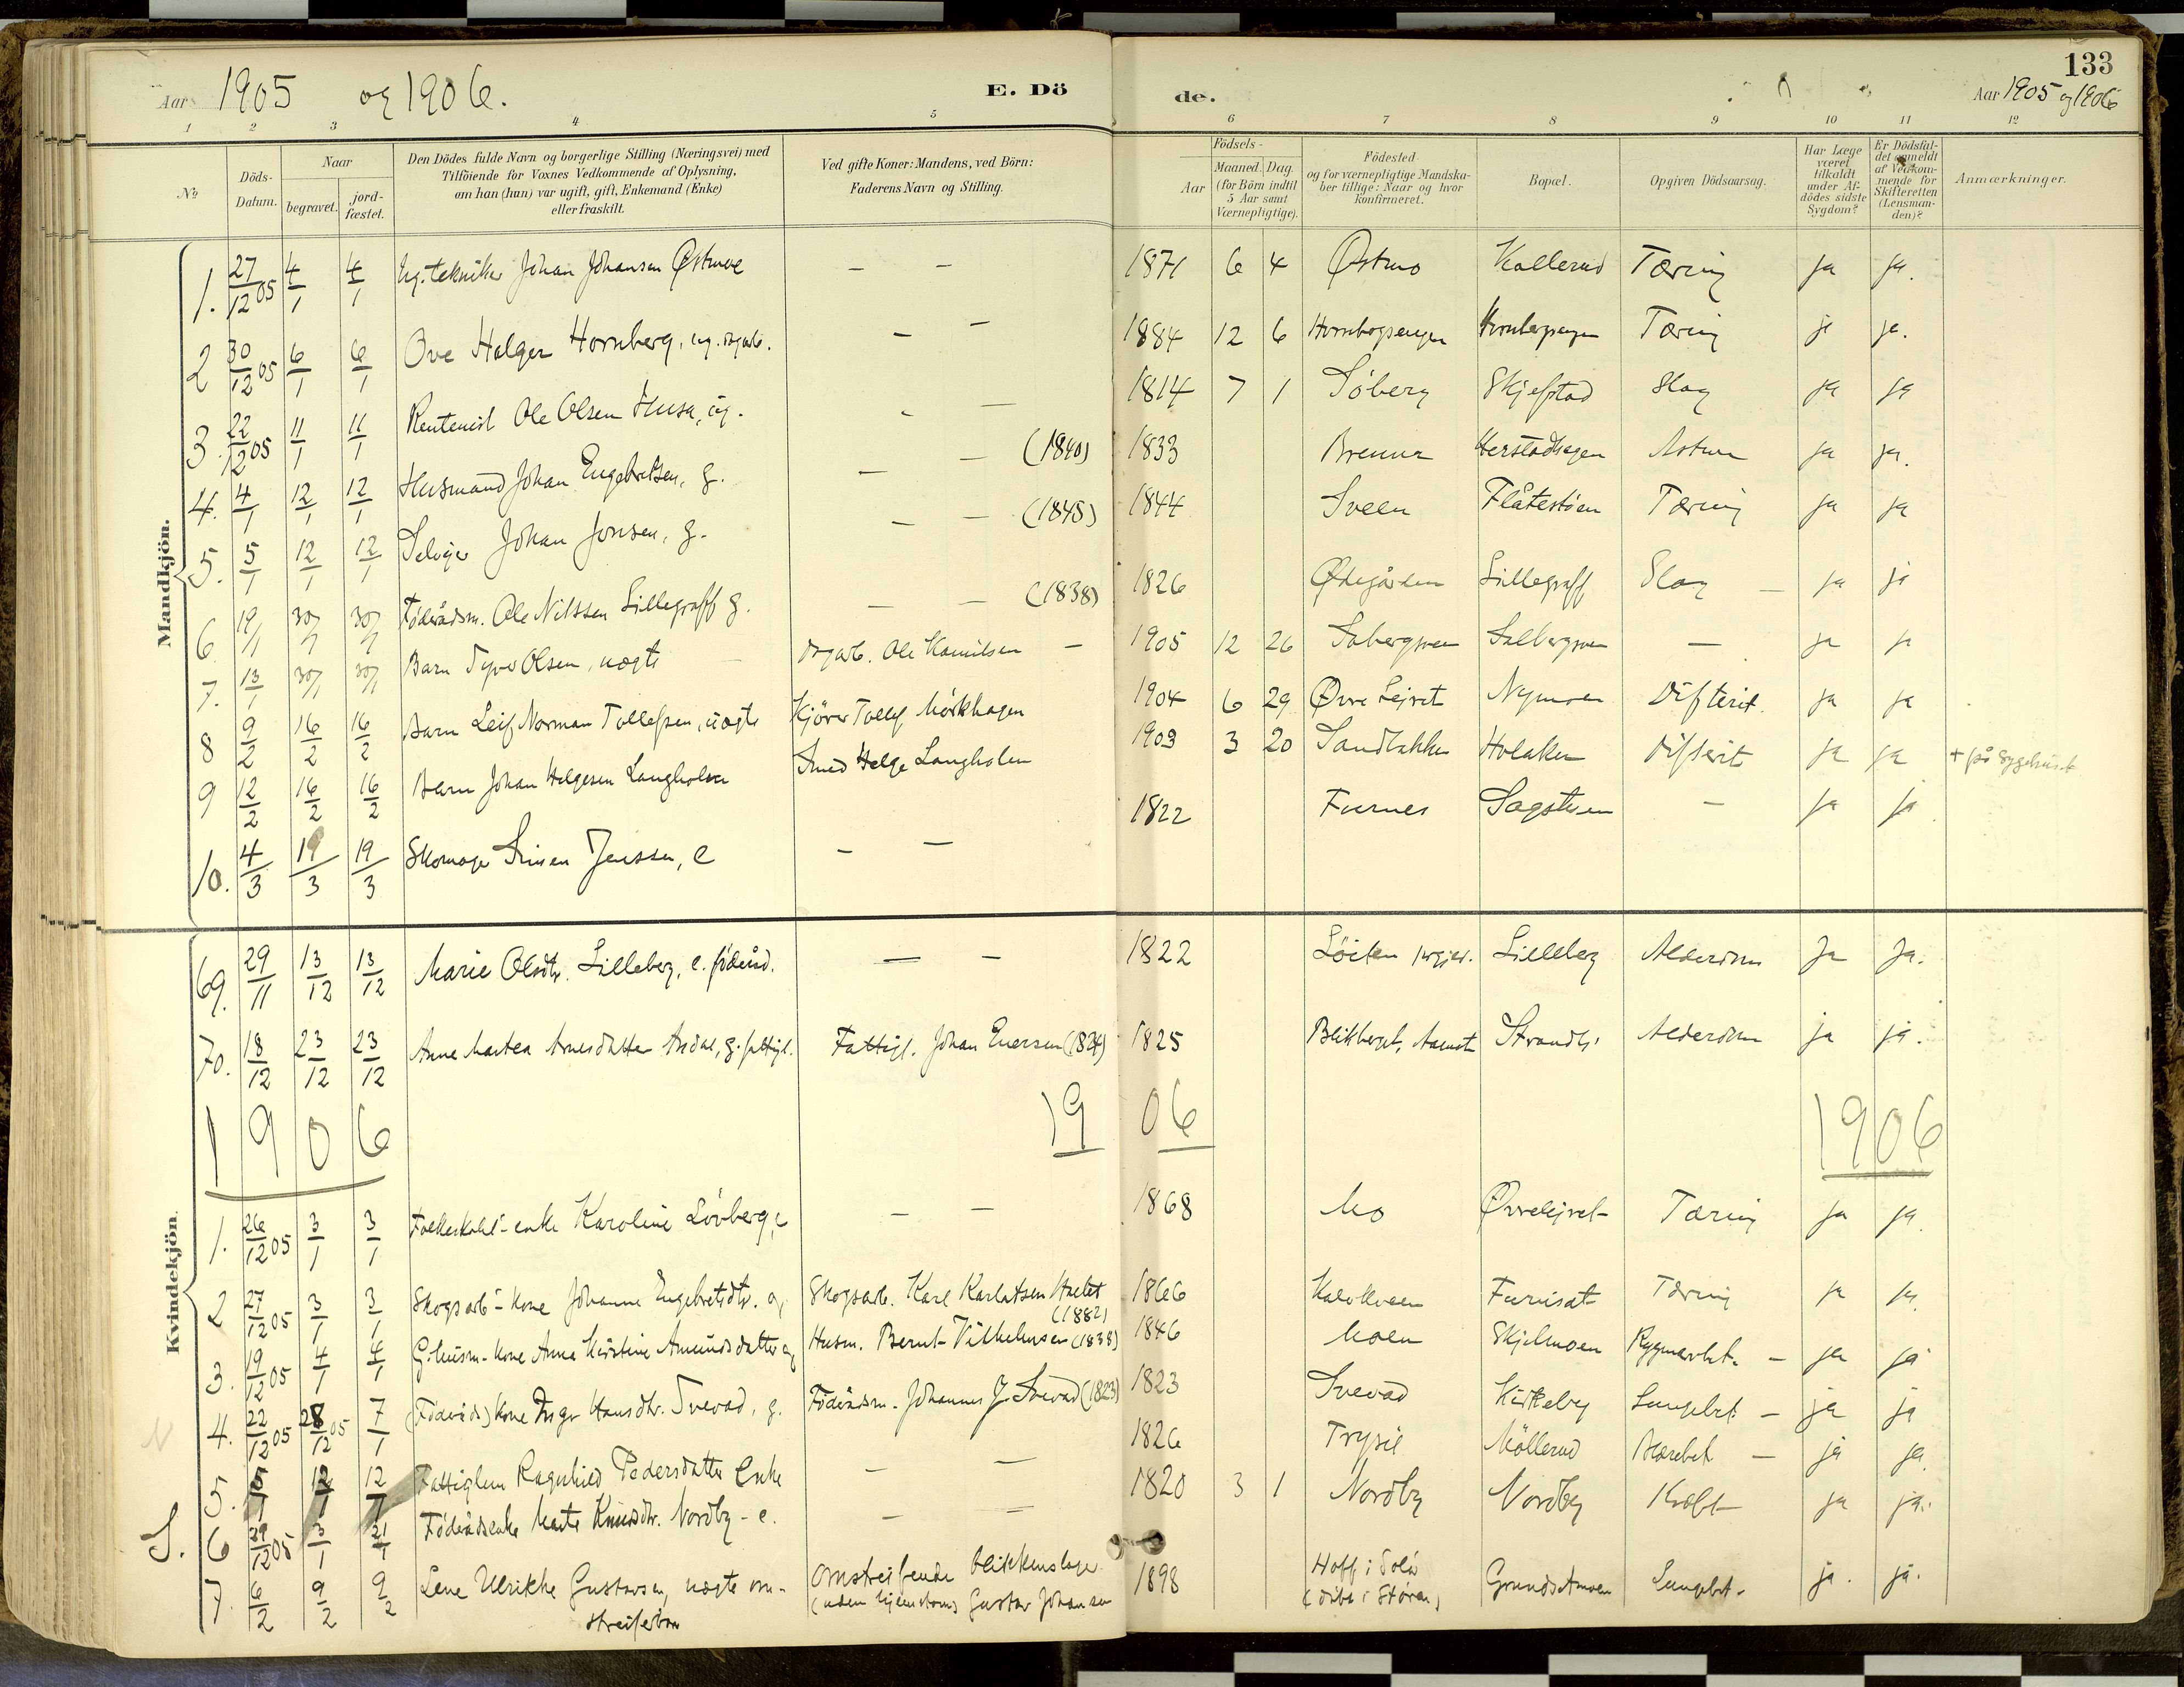 133
Aar 1905 og 1906. E. Dö de. Aar 1905 og 1906
1 2 3 4 5 6 7 8 9 10 11 12
No
Döds-Datum.
Naar begravet. jord-fæstet.
Den Dödes fulde Navn og borgerlige Stilling (Næringsvei) med Tilföiende for Voxnes Vedkommende af Oplysning, om han (hun) var ugift, gift, Enkemand (Enke) eller fraskilt.
Ved gifte Koner: Mandens, ved Börn: Faderens Navn og Stilling.
Födsels-
Aar Maaned. Dag. (for Börn indtil 5 Aar samt Værnepligtige).
Födested og for værnepligtige Mandskaber tillige: Naar og hvor konfirmeret.
Bopæl.
Opgiven Dödsaarsag.
Har Læge været tilkaldt under Afdödes sidste Sygdom?
Er Dödsfaldet anmeldt af Vedkommende for Skifteretten (Lensmanden)?
Anmærkninger.
Mandkjön.
1. 27/12 05 4/1 4/1 tekniker Johan Johansen Østmoe — — 1871 6 4 Østmo Kallerud Tæring ja ja.
2 30/12 05 6/1 6/1 Ove Holger Hornberg, ug. — — 1884 12 6 Tæring ja ja.
3. 22/12 05 11/1 11/1 Rentenist Ole Olsen Husa, ug. - — 1814 7 1 Söberg Skjefstad Slag ja ja
4. 4/1 12/1 12/1 Husmand Johan Engebretsen, g. — — (1840) 1833 Brenna Herstadhagen ja ja.
5. 5/1 12/1 12/1 Selveier Johan Jonsen, g. — — (1845) 1844 Sveen Flåtestöen Tæring ja ja
6. 19/1 30/1 30/1 Föderådsm. Ole Nilssen Lillegraff g. — — (1838) 1826 Ødegården Lillegraff Slag — ja ja
7. 13/1 30/1 30/1 Barn Syver Olsen, uægte dagarb. Ole Kamilsen — 1905 12 26 — ja ja
8 9/2 16/2 16/2 Barn Leif Norman Tollefsen, uægte Kjörer Tollef Mörkhagen 1904 6 29 Øvre Lejret Nymoen Difterit ja ja
9 12/2 16/2 16/2 Barn Johan Helgesen Langholen Smed Helge Langholen 1903 3 20 Sandbakken Holaker Difterit ja ja + på Sygehuset
10. 4/3 19/3 19/3 Skomager Simen Jenssen, e — — 1822 Furnes Sagstuen — ja ja
Kvindekjön.
69. 29/11 13/12 13/12 Marie Olsdtr. Lilleberg, e. föderåd. — — 1822 Löiten prgjld. Lilleberg Alderdom ja ja.
70. 18/12 23/12 23/12 Anne Martea Arnesdatter Asdal, g. fattigl. Fattigl. Johan Enersen (1824) 1825 Blikberget, Aamot Strandli Alderdom ja ja.
1906 1906 1906
1. 26/12 05 3/1 3/1 enke Karoline Lövberg, e — — 1868 Mo Øvrelejret Tæring ja ja.
2 27/12 05 3/1 3/1 Skogsarb-kone Johanne Engebretsdtr. g. Skogsarb. Karl Karlatsen Holtet (1882) 1866 Kalvkveen Furuset Tæring ja ja.
3. 19/12 05 4/1 4/1 G. husm.-kone Anna Kirstine Amundsdatter g. Husm. Bernt Vilhelmsen (1838) 1846 Moen Skjelmoen Rygmarvbet. — ja ja
N 4. 22/12 05 28/12 05 7/1 (Föderåds)kone Inger Hansdtr. Svevad, g. Föderådsm. Johannes J. Svevad (1823) 1823 Svevad Kirkeby Lungebet. — ja ja
5. 12/1 12/1 Fattiglem Ragnhild Pedersdatter Enke — — 1826 Trysil Möllerud — ja ja
S. 6 29/12 05 3/1 21/1 Föderådsenke Marte Knudsdtr. Nordby - e. — — 1820 3 1 Nordby Nordby Kræft ja ja.
7. 6/2 9/2 9/2 Lene Ulrikke Gustavsen, uægte om-streiferbarn Omstreifende blikkenslager (uden hjemstavn) Gustav Johansen 1898 Hoff i Solør (döbt i Stören) Grundsetmoen Lungebet. ja. ja.